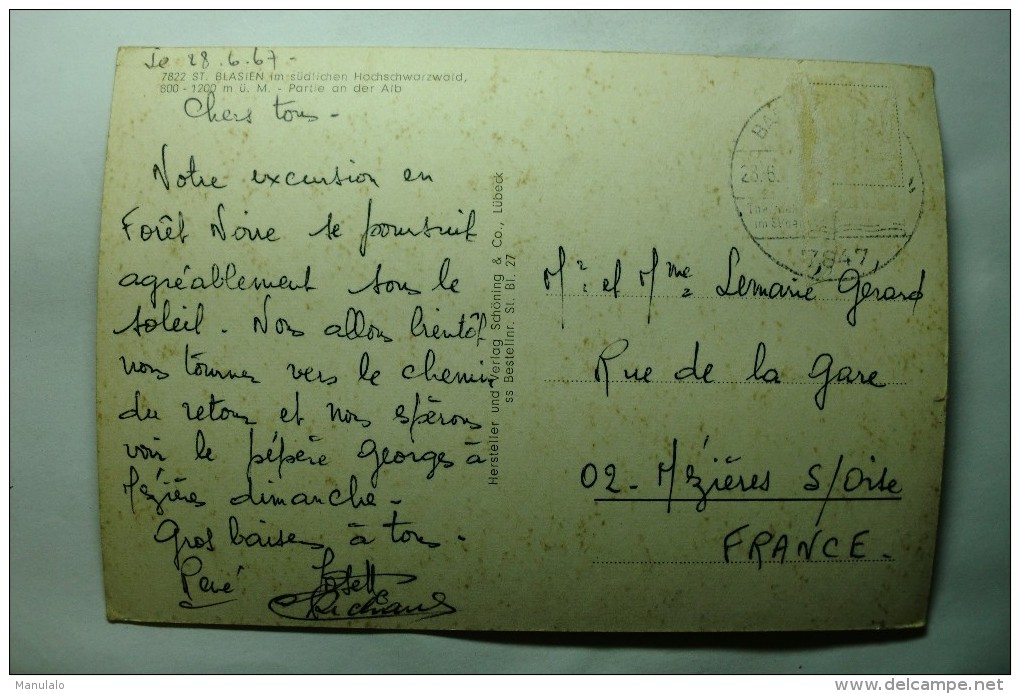 le 28.6.67-
7822 ST. BLASIEN im südlichen Hochschwarzwald,
800 - 1200 m ü. M. - Partie an der Alb
Chers tous -
Notre excursion en
Forêt Noire se poursuit
agréablement sous le
soleil. Nous allons bientôt
nous tourner vers le chemin
du retour et nous espérons
voir le pépère Georges à
Mézières dimanche -
Gros baisers à tous -
René Josette
Richard
Hersteller und Verlag Schöning & Co., Lübeck
ss Bestellnr. St. Bl. 27
28.6.
7847
Mr et Mme Lemaire Gérard
Rue de la Gare
02 - Mézières S/Oise
FRANCE -
Manulalo
delcampe.net